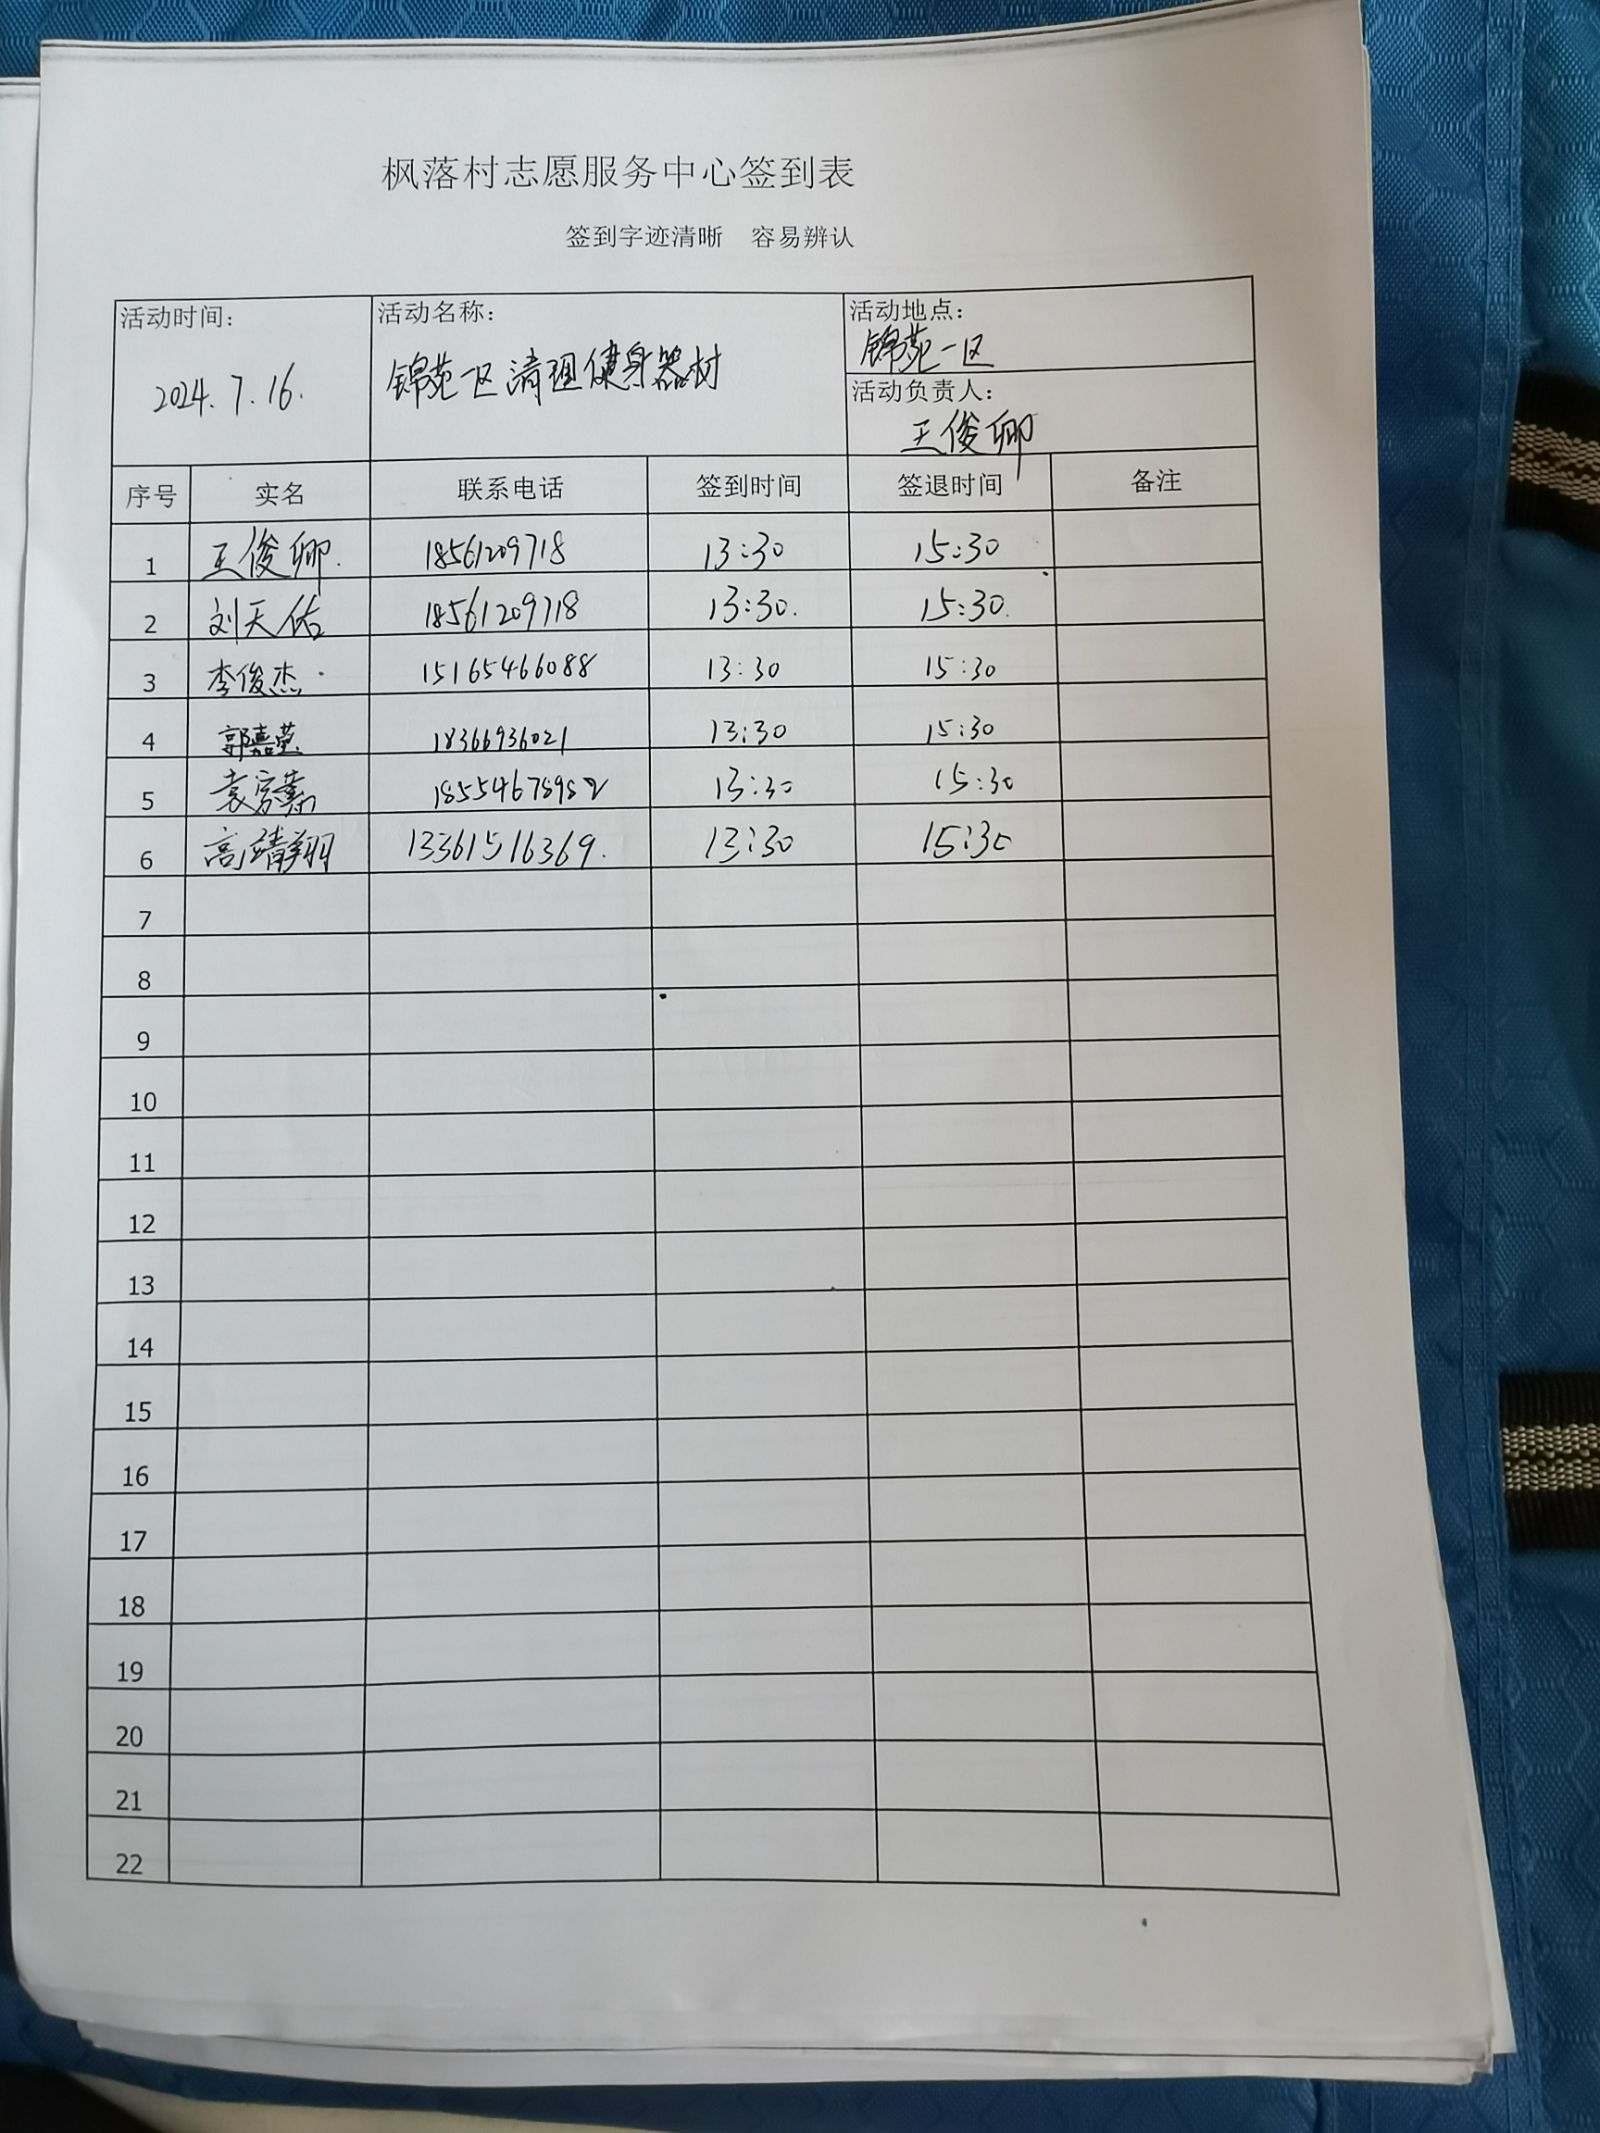 枫落村志愿服务中心签到表
签到字迹清晰 容易辨认
活动时间: 活动名称: 活动地点:
锦苑一区
2024.7.16. 锦苑一区清理健身器材
活动负责人:
王俊卿
序号 实名 联系电话 签到时间 签退时间 备注
1 王俊卿. 18561209718 13:30 15:30
2 刘天佑 18561209718 13:30. 15:30.
3 李俊杰. 15165466088 13:30 15:30
4 郭嘉 18366936021 13:30 15:30
5 袁 18554678982 13:30 15:30
6 高靖翔 13361516369. 13:30 15:30
7
8
9
10
11
12
13
14
15
16
17
18
19
20
21
22